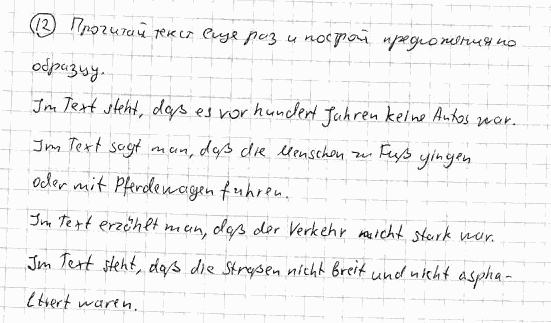 (12) Прочитай текст еще раз и построй предложения по
образцу.
Im Text steht, daß es vor hundert Jahren keine Autos war.
Im Text sagt man, daß die Menschen zu Fuß gingen
oder mit Pferdewagen fuhren.
Im Text erzählt man, daß der Verkehr nicht stark war.
Im Text steht, daß die Straßen nicht breit und nicht aspha-
ltiert waren.